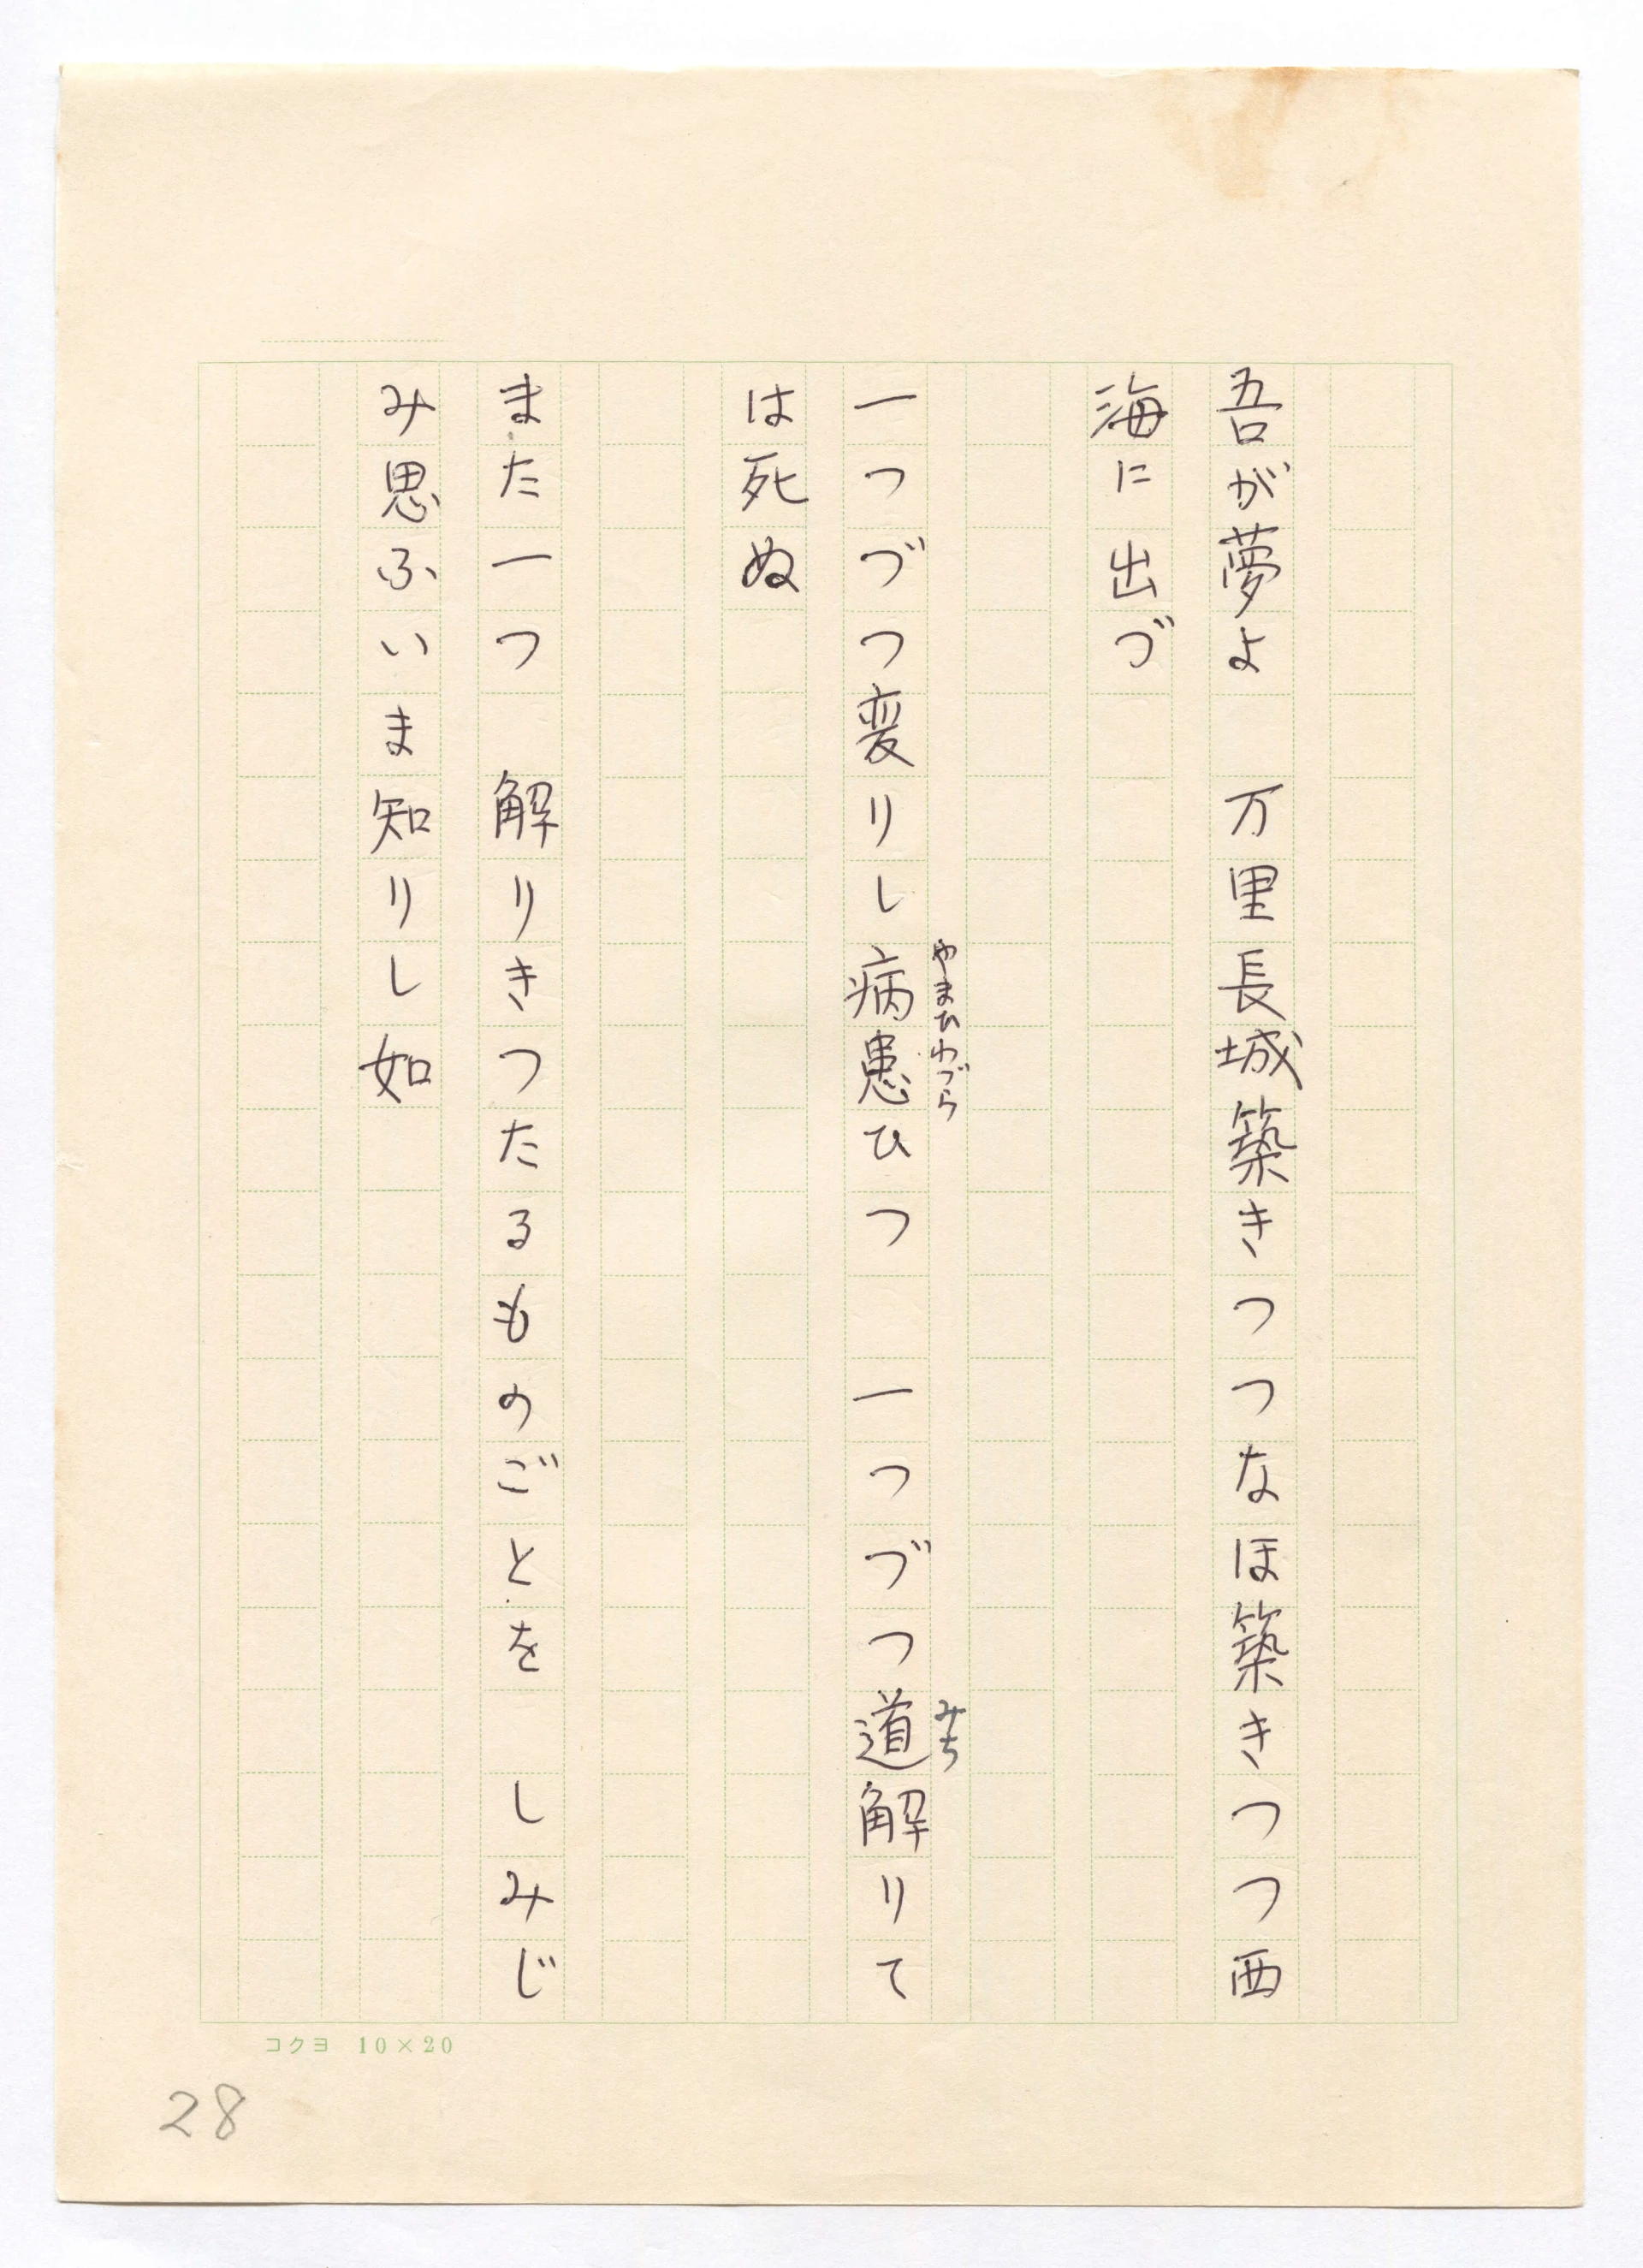 吾が夢よ　万里長城築きつつなほ築きつつ西
海に出づ
一つづつ変りし病患ひつ　一つづつ道解りて
やまひわづら
みち
は死ぬ
また一つ　解りきつたるものごとを　しみじ
み思ふいま知りし如
コクヨ 10×20
28